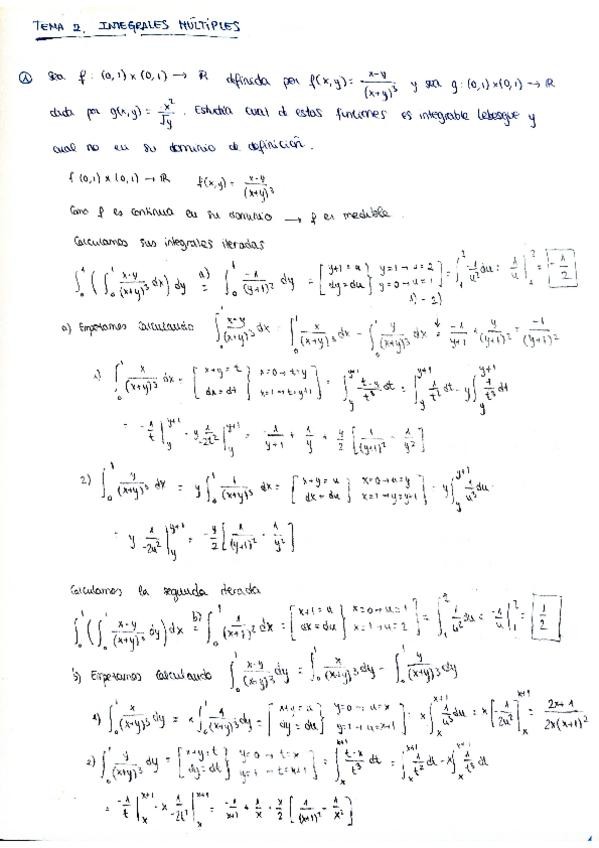 TEMA 2. INTEGRALES MÚLTIPLES
① Sea f: (0,1) x (0,1) → R definida por f(x,y) = (x-y)/(x+y)^3 y sea g: (0,1)x(0,1) → R
dada por g(x,y) = x^2/√y. Estudia cual d estas funciones es integrable Lebesgue y
cual no en su dominio de definición.
f (0,1) x (0,1) → R f(x,y) = (x-y)/(x+y)^3
Como f es continua en su dominio → f es medible.
Calculamos sus integrales iteradas
∫_0^1 (∫_0^1 (x-y)/(x+y)^3 dx) dy =^{a)} ∫_0^1 -1/(y+1)^2 dy = [y+1=u, dy=du} y=1→u=2, y=0→u=1] = ∫_1^2 -1/u^2 du = 1/u |_1^2 = -1/2
a) Empezamos calculando ∫_0^1 (x-y)/(x+y)^3 dx = ∫_0^1 x/(x+y)^3 dx - ∫_0^1 y/(x+y)^3 dx = -1/(y+1) + y/(y+1)^2 = -1/(y+1)^2
1) ∫_0^1 x/(x+y)^3 dx = [x+y=t, dx=dt} x=0→t=y, x=1→t=y+1] = ∫_y^{y+1} (t-y)/t^3 dt = ∫_y^{y+1} 1/t^2 dt - y∫_y^{y+1} 1/t^3 dt
= -1/t |_y^{y+1} - y 1/-2t^2 |_y^{y+1} = -1/(y+1) + 1/y + y/2 [1/(y+1)^2 - 1/y^2]
2) ∫_0^1 y/(x+y)^3 dx = y∫_0^1 1/(x+y)^3 dx = [x+y=u, dx=du} x=0→u=y, x=1→u=y+1] = y∫_y^{y+1} 1/u^3 du
= y 1/-2u^2 |_y^{y+1} = -y/2 [1/(y+1)^2 - 1/y^2]
Calculamos la segunda iterada
∫_0^1 (∫_0^1 (x-y)/(x+y)^3 dy) dx =^{b)} ∫_0^1 1/(x+1)^2 dx = [x+1=u, dx=du} x=0→u=1, x=1→u=2] = ∫_1^2 1/u^2 du = -1/u |_1^2 = 1/2
b) Empezamos calculando ∫_0^1 (x-y)/(x+y)^3 dy = ∫_0^1 x/(x+y)^3 dy - ∫_0^1 y/(x+y)^3 dy
1) ∫_0^1 x/(x+y)^3 dy = x∫_0^1 1/(x+y)^3 dy = [x+y=u, dy=du} y=0→u=x, y=1→u=x+1] = x∫_x^{x+1} 1/u^3 du = x[-1/2u^2]_x^{x+1} = (2x+1)/(2x(x+1)^2)
2) ∫_0^1 y/(x+y)^3 dy = [x+y=t, dy=dt} y=0→t=x, y=1→t=x+1] = ∫_x^{x+1} (t-x)/t^3 dt = ∫_x^{x+1} 1/t^2 dt - x∫_x^{x+1} 1/t^3 dt
= -1/t |_x^{x+1} - x 1/-2t^2 |_x^{x+1} = -1/(x+1) + 1/x + x/2 [1/(x+1)^2 - 1/x^2]